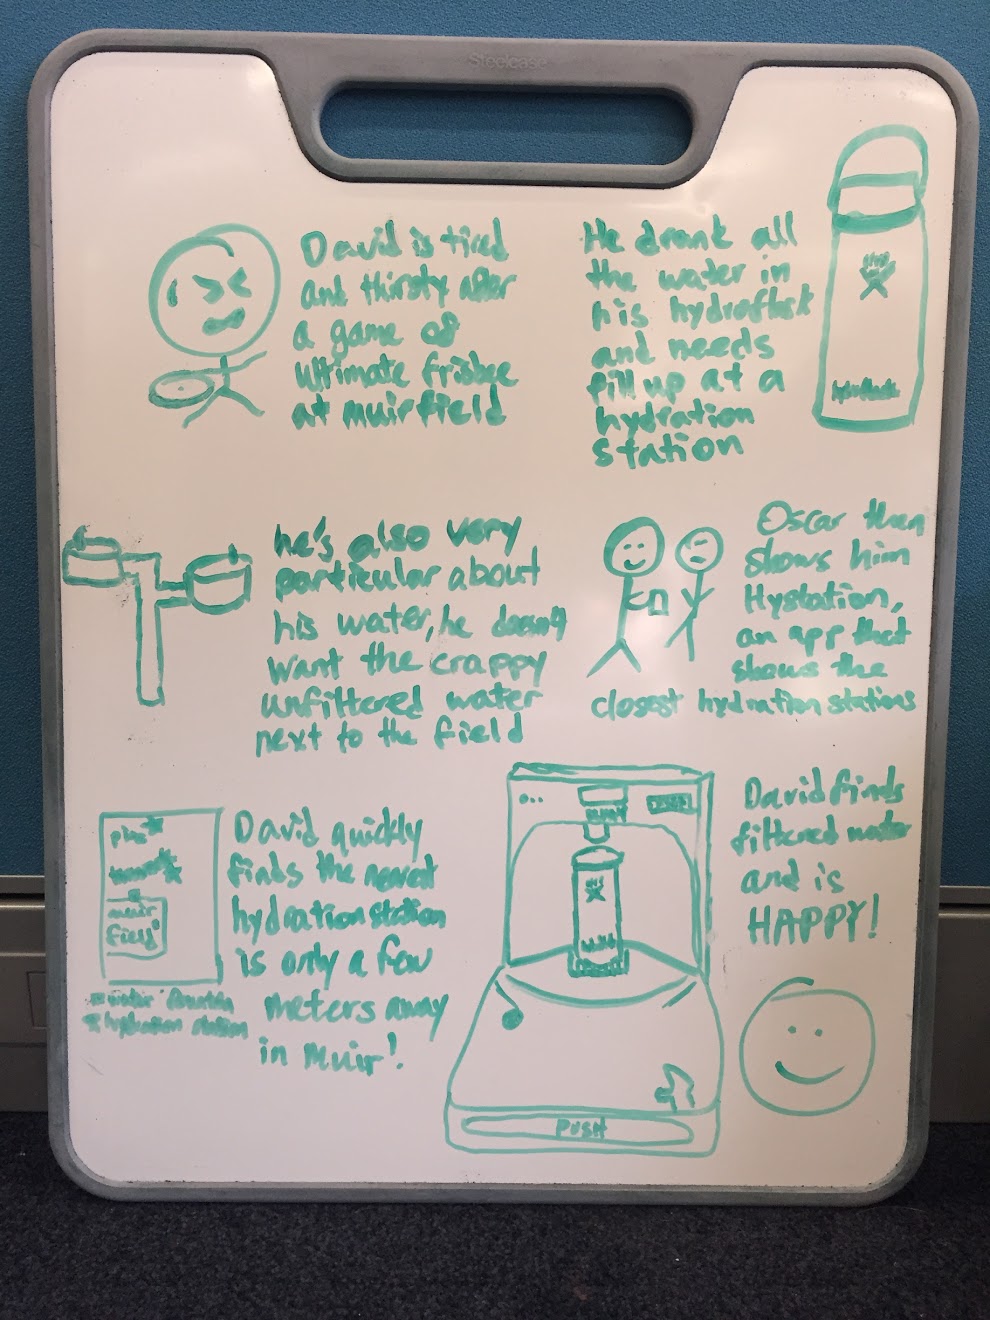 Steelcase
David is tired
and thirsty after
a game of
ultimate frisbee
at muirfield
He drank all
the water in
his hydroflask
and needs
fill up at a
hydration
station
hydroflask
he's also very
particular about
his water, he doesn't
want the crappy
unfiltered water
next to the field
Oscar then
shows him
Hystation,
an app that
shows the
closest hydration stations
muir
field
water fountain
hydration station
David quickly
finds the nearest
hydration station
is only a few
meters away
in Muir!
PUSH
David finds
filtered water
and is
HAPPY!